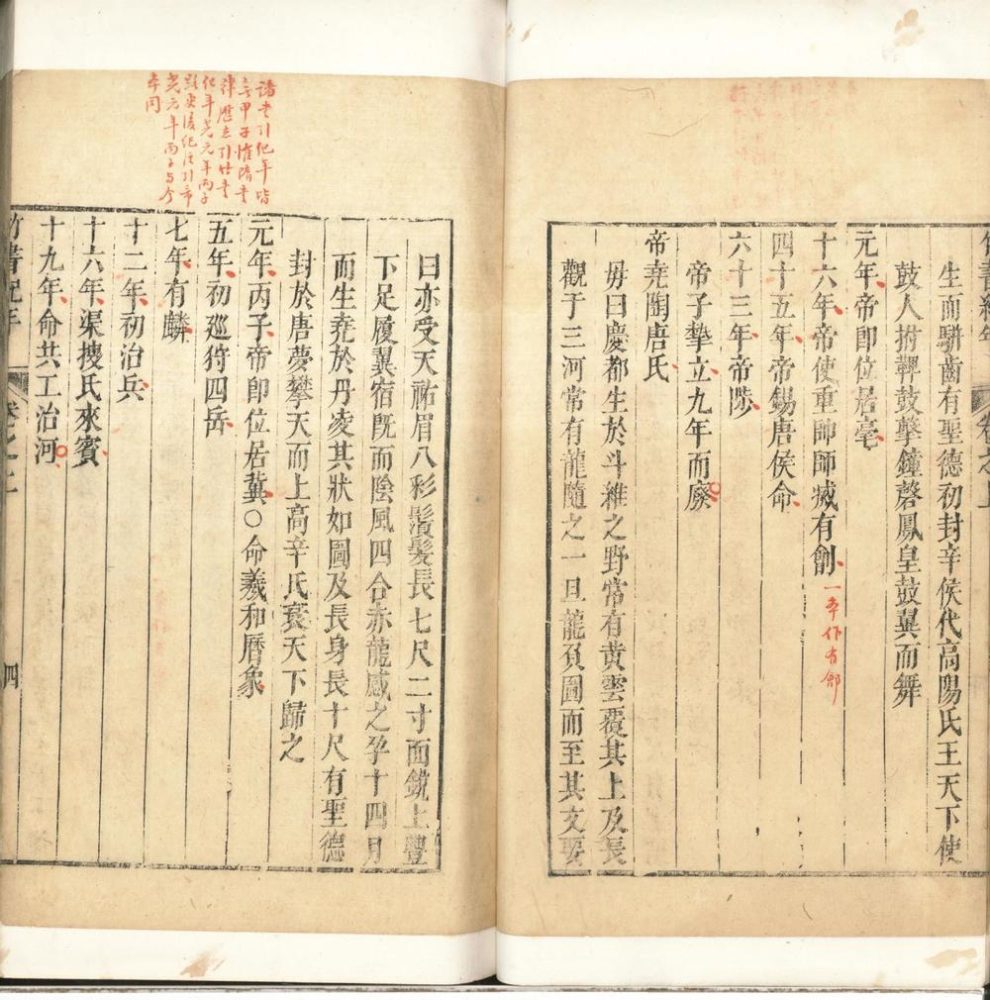 竹書紀年 卷之上
生而駢齒有聖德初封辛侯代高陽氏王天下使
鼓人拊鞞鼓擊鐘磬鳳皇鼓翼而舞
元年帝卽位居亳
十六年帝使重帥師滅有創一本作有鄶
四十五年帝錫唐侯命
六十三年帝陟
帝子摯立九年而廢
帝堯陶唐氏
毋曰慶都生於斗維之野常有黄雲覆其上及長
觀于三河常有龍隨之一旦龍負圖而至其文要
諸書引紀年皆
無甲子惟隋書
律歷志引竹書
紀年堯元年丙子
路史後紀注引帝
堯元年丙子与今
本同
曰亦受天祐眉八彩鬚髮長七尺二寸面鋭上豐
下足履翼宿旣而陰風四合赤龍感之孕十四月
而生堯於丹凌其狀如圖及長身長十尺有聖德
封於唐夢攀天而上高辛氏衰天下歸之
元年丙子帝卽位居冀○命羲和曆象
五年初巡狩四岳
七年有麟
十二年初治兵
十六年渠搜氏來賓
十九年命共工治河
竹書紀年 卷之上 四